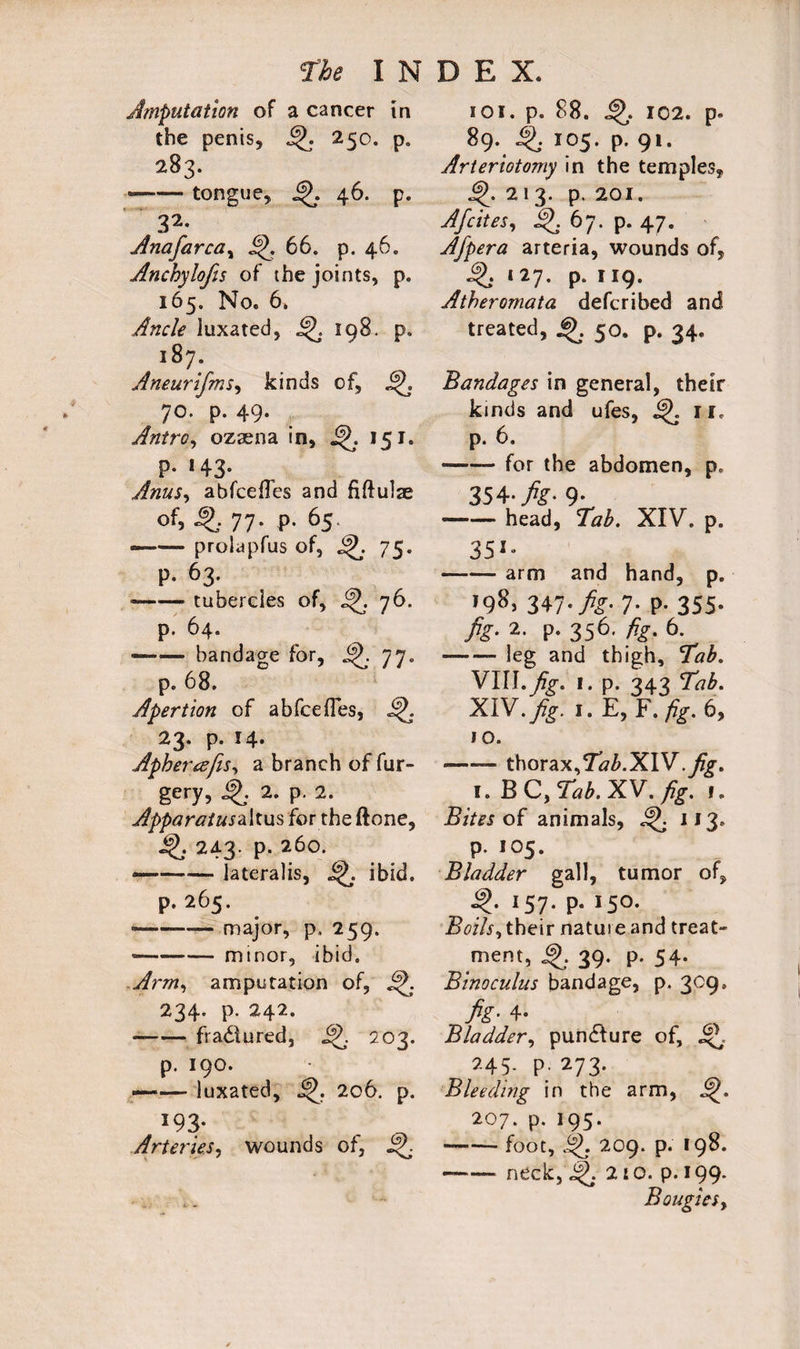 The INDEX.
Amputation of a cancer in
the penis, Q. 250. p.
283.
—— tongue, Q. 46. p.
32.
Anaſarca, Q. 66. p. 46.
Anchyloſis of the joints, p.
165. No. 6.
Ancle luxated, Q. 198. p.
187.
Aneuriſms, kinds of, Q.
70. p. 49.
Antro, ozæna in, Q. 151.
p. 143.
Anus, abſceſſes and fiſtulæ
of, Q. 77. p. 65.
—— prolapſus of, Q. 75.
p. 63.
—— tubercles of, Q. 76.
p. 64.
—— bandage for, Q. 77.
p. 68.
Apertion of abſceſſes, Q.
23. p. 14.
Aphæreſis, a branch of ſur-
gery, Q. 2. p. 2.
Apparatus altus for the ſtone,
Q. 243. p. 260.
——— lateralis, Q. ibid.
p. 265.
——— major, p. 259.
——— minor, ibid.
Arm, amputation of, Q.
234. p. 242.
—— fractured, Q. 203.
p. 190.
—— luxated, Q. 206. p.
193.
Arteries, wounds of, Q.
101. p. 88. Q. 102. p.
89. Q. 105. p. 91.
Arteriotomy in the temples,
Q. 213. p. 201.
Aſcites, Q. 67. p. 47.
Aſpera arteria, wounds of,
Q. 127. p. 119.
Atheromata deſcribed and
treated, Q. 50. p. 34.
Bandages in general, their
kinds and uſes, Q. 11.
p. 6.
—— for the abdomen, p.
354. fig. 9.
—— head, Tab. XIV. p.
351.
—— arm and hand, p.
198, 347. fig. 7. p. 355.
fig. 2. p. 356. fig. 6.
—— leg and thigh, Tab.
VIII. fig. 1. p. 343 Tab.
XIV. fig. 1. E, F. fig. 6,
10.
—— thorax, Tab. XIV. fig.
1. B C, Tab. XV. fig. 1.
Bites of animals, Q. 113.
p. 105.
Bladder gall, tumor of,
Q. 157. p. 150.
Boils, their nature and treat-
ment, Q. 39. p. 54.
Binoculus bandage, p. 309.
fig. 4.
Bladder, puncture of, Q.
245. p. 273.
Bleeding in the arm, Q.
207. p. 195.
—— foot, Q. 209. p. 198.
—— neck, Q. 210. p. 199.
Bougies,